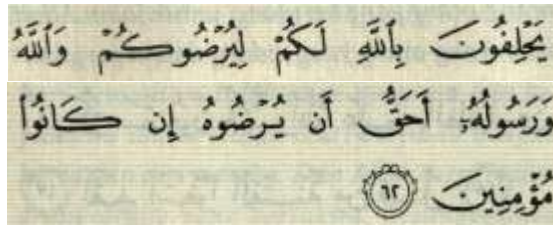 يَحْلِفُونَ بِٱللَّهِ لَكُمْ لِيُرْضُوكُمْ وَٱللَّهُ
وَرَسُولُهُۥٓ أَحَقُّ أَن يُرْضُوهُ إِن كَانُوا۟
مُؤْمِنِينَ ٦٢